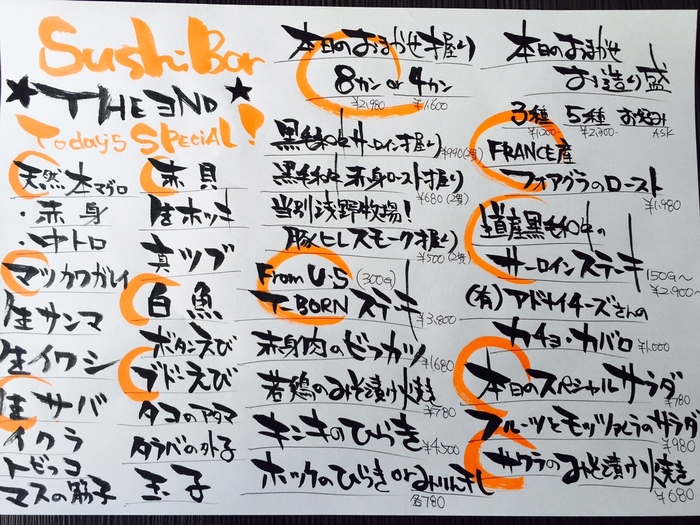 Sushi Bar
★THE END★
Today's SPECIAL!
天然本マグロ
・赤身
・中トロ
マツカワガレイ
生サンマ
生イワシ
生サバ
イクラ
トビッコ
マスの筋子
赤貝
生ホッキ
真ツブ
白魚
ボタンえび
ブドーえび
タコのアタマ
タラバの外子
玉子
本日のおまかせ才屋り
8カン or 4カン
¥2,980 ¥1,600
黒毛和牛サーロイン握り ¥990(2貫)
黒毛和牛赤身ロースト握り
¥680(2貫)
当別浅野牧場!
豚ヒレスモーク握り
¥500(2貫)
From U.S (300G)
T-BORNステーキ
¥3,800
赤身肉のビフカツ
¥1,680
若鶏のみそ漬け焼き
¥780
キンキのひらき
¥4,500
ホッケのひらきorみりん干し
各780
本日のおまかせ
お造り盛
3種 5種 お好み
¥1,200- ¥2,300- ASK
FRANCE産
フォアグラのロースト
¥1,980
道産黒毛和牛の
サーロインステーキ
150G〜
¥2,900〜
(有)アドナイチーズさんの
カチョ・カバロ
¥1,000
本日のスペシャルサラダ
¥780
フルーツとモッツァレラのサラダ
¥980
サクラのみそ漬け焼き
¥680